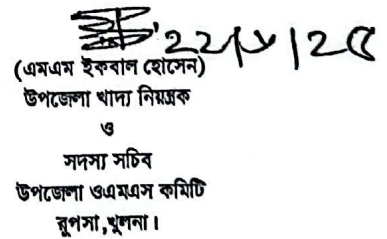 (এমএম ইকবাল হোসেন)
উপজেলা খাদ্য নিয়ন্ত্রক
ও
সদস্য সচিব
উপজেলা ওএমএস কমিটি
রূপসা,খুলনা।